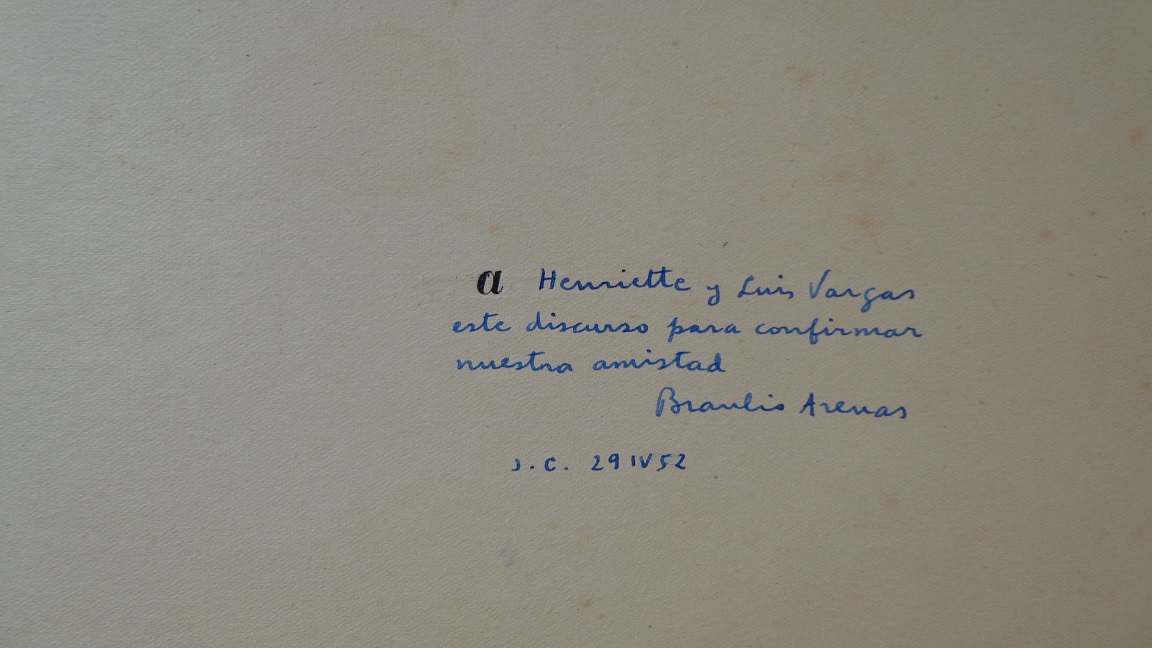 a Henriette y Luis Vargas
este discurso para confirmar
nuestra amistad
Braulio Arenas
J.C. 29 IV 52